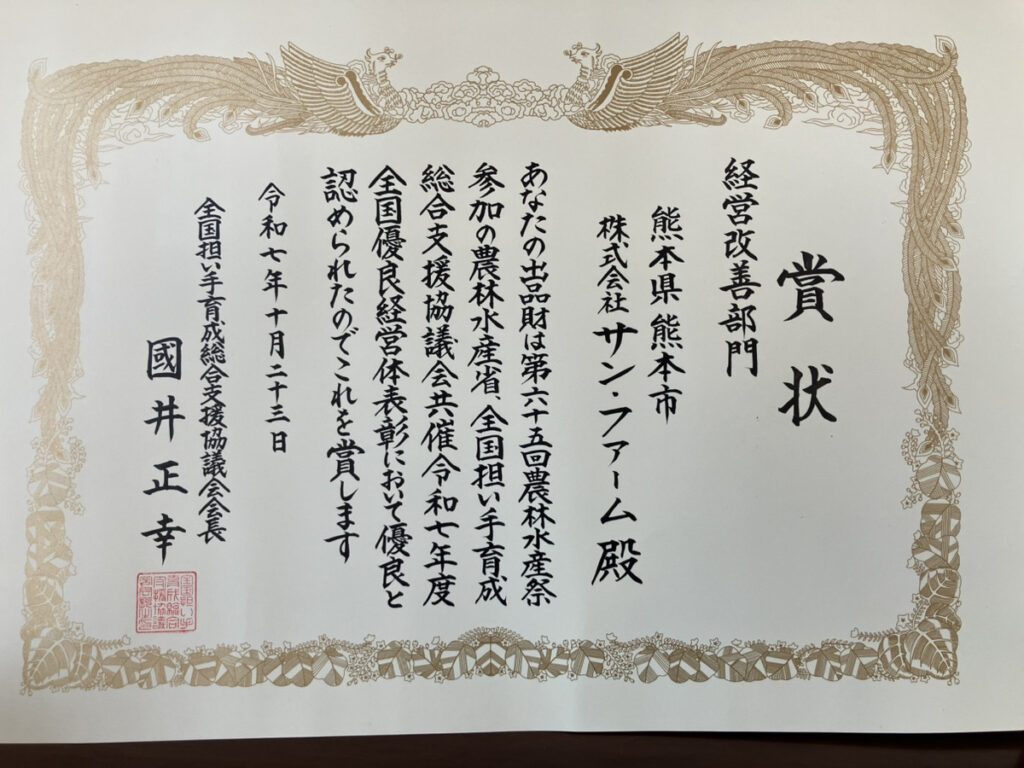 賞状
経営改善部門
熊本県熊本市
株式会社サン・ファーム殿
あなたの出品財は第六十五回農林水産祭
参加の農林水産省、全国担い手育成
総合支援協議会共催令和七年度
全国優良経営体表彰において優良と
認められたのでこれを賞します
令和七年十月二十三日
全国担い手育成総合支援協議会会長
國井正幸